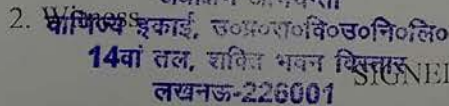 2. Witness
वाणिज्य इकाई, उ०प्र०रा०वि०उ०नि०लि०
14वां तल, शक्ति भवन विस्तार
SIGNE
लखनऊ-226001